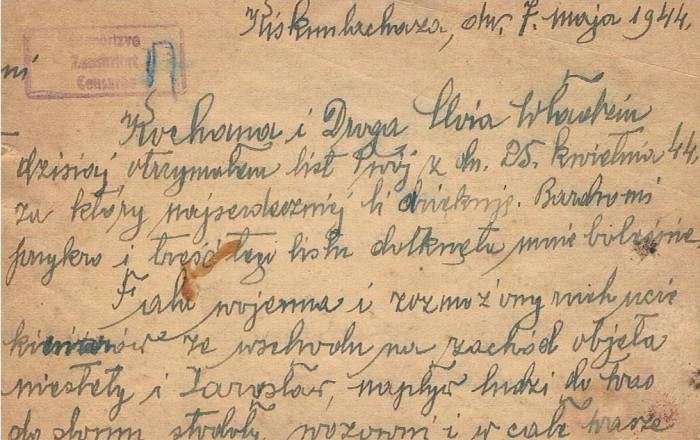 Kiskunlacháza, dn. 7. maja 1944.
Zensuriert
Censurée
Kochana i Droga Moja Władziu
dzisiaj otrzymałem list Twój z dn. 25. kwietnia 44.
za który najserdeczniej Ci dziękuję. Bardzo mi
przykro i treść tego listu dotknęła mnie boleśnie,
Fala wojenna i rozmożony ruch ucie
kinierów ze wschodu na zachód objęła
niestety i Jarosław, napływ ludzi do
do słomy, stodoły, wozowni i w całe